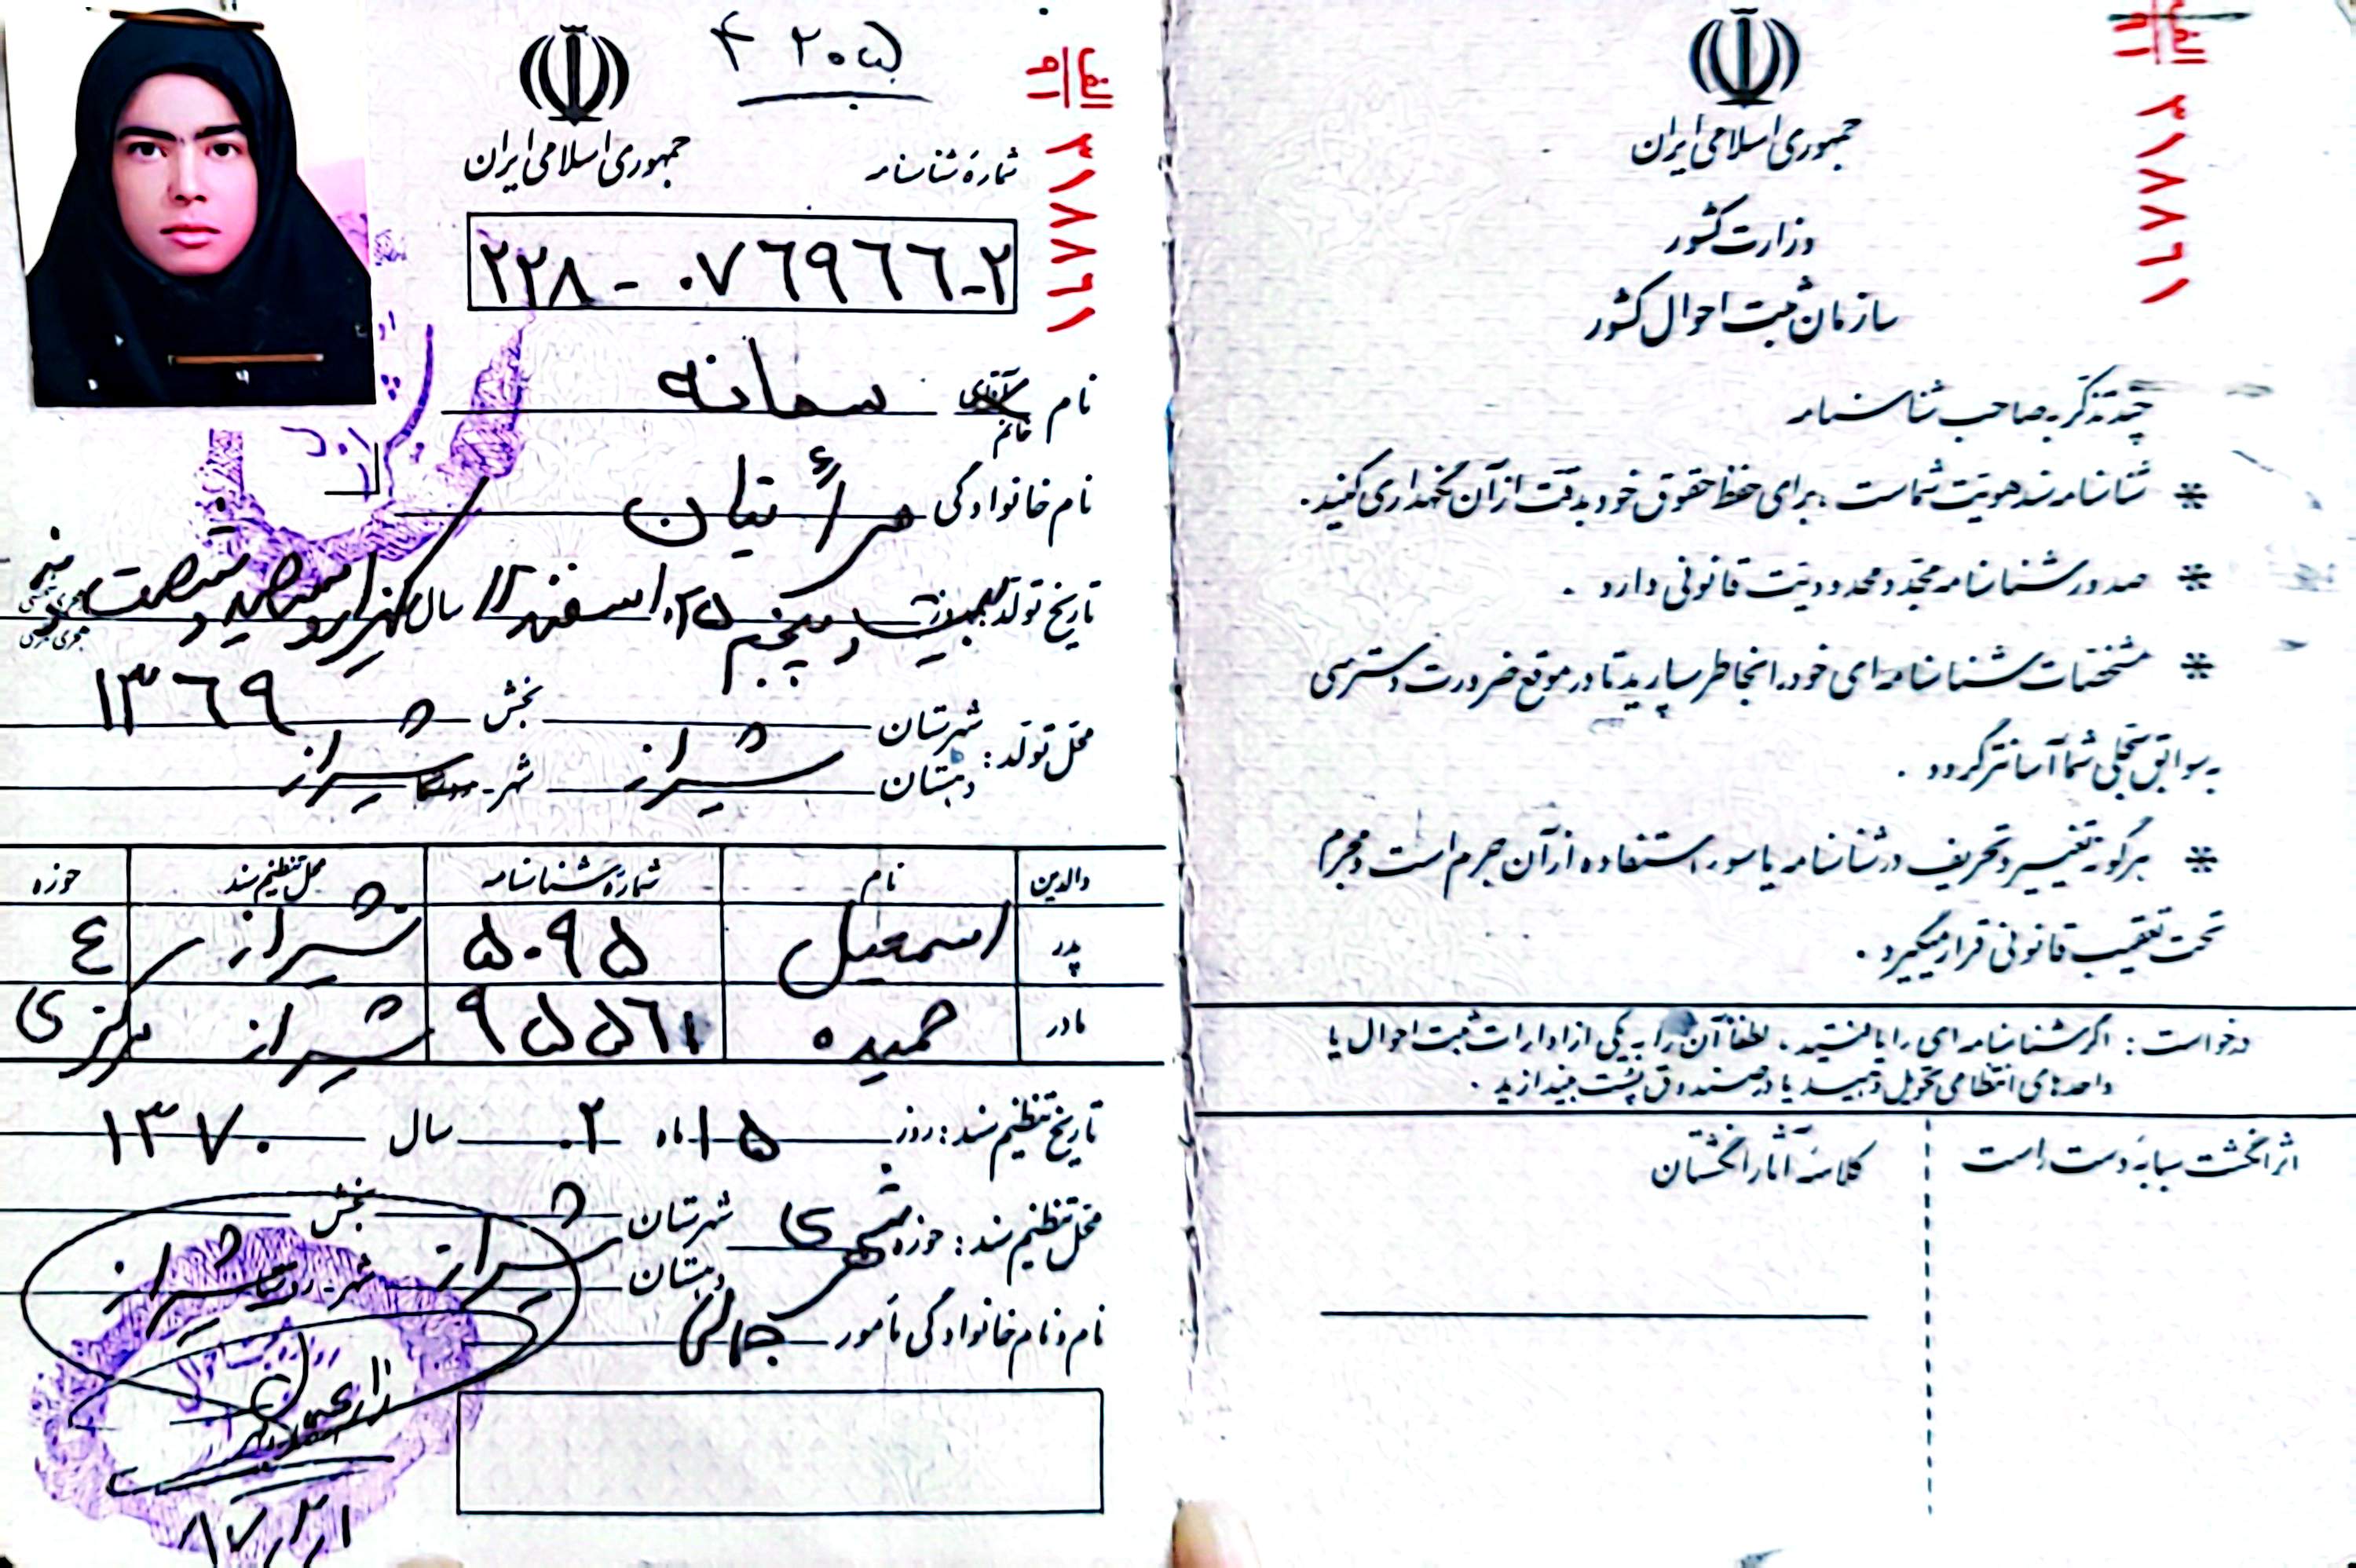 ۴۲۰۵
الف
۹۱
۳۱۸۸۶۱
جمهوری اسلامی ایران
شماره شناسنامه
۲۲۸-۰۷۶۹۶۶-۲
نام آقای خانم سمانه
نام خانوادگی مرأتیان
تاریخ تولد: روز بیست و پنجم ۲۵ ماه اسفند ۱۲ سال یکهزار و سیصد و شصت و نه
هجری شمسی
هجری قمری
۱۳۶۹
محل تولد: شهرستان شیراز بخش
دهستان شهر - روستا شیراز
والدین نام شماره شناسنامه محل تنظیم سند حوزه
پدر اسمعیل ۵۰۹۵ شیراز ٤
مادر حمیده ۹۵۵۶۱ شیراز مرکزی
تاریخ تنظیم سند: روز ۱۵ ماه ۰۲ سال ۱۳۷۰
محل تنظیم سند: حوزه شهرستان شیراز بخش
دهستان شهر - روستا شیراز
نام و نام خانوادگی مأمور
زارعی
۸۷,۲,۲۱
الف
۹۱
۳۱۸۸۶۱
جمهوری اسلامی ایران
وزارت کشور
سازمان ثبت احوال کشور
چند تذکر به صاحب شناسنامه
* شناسنامه سند هویت شماست، برای حفظ حقوق خود بدقت از آن نگهداری کنید.
* صدور شناسنامه مجدد محدودیت قانونی دارد.
* مشخصات شناسنامه‌ای خود را بخاطر بسپارید تا در موقع ضرورت دسترسی
به سوابق سجلی شما آسانتر گردد.
* هرگونه تغییر و تحریف در شناسنامه یا سوء استفاده از آن جرم است و مجرم
تحت تعقیب قانونی قرار میگیرد.
درخواست: اگر شناسنامه‌ای را یافتید، لطفاً آن را به یکی از ادارات ثبت احوال یا
واحدهای انتظامی تحویل دهید یا در صندوق پست بیندازید.
اثر انگشت سبابه دست راست
کلاسه آثار انگشتان